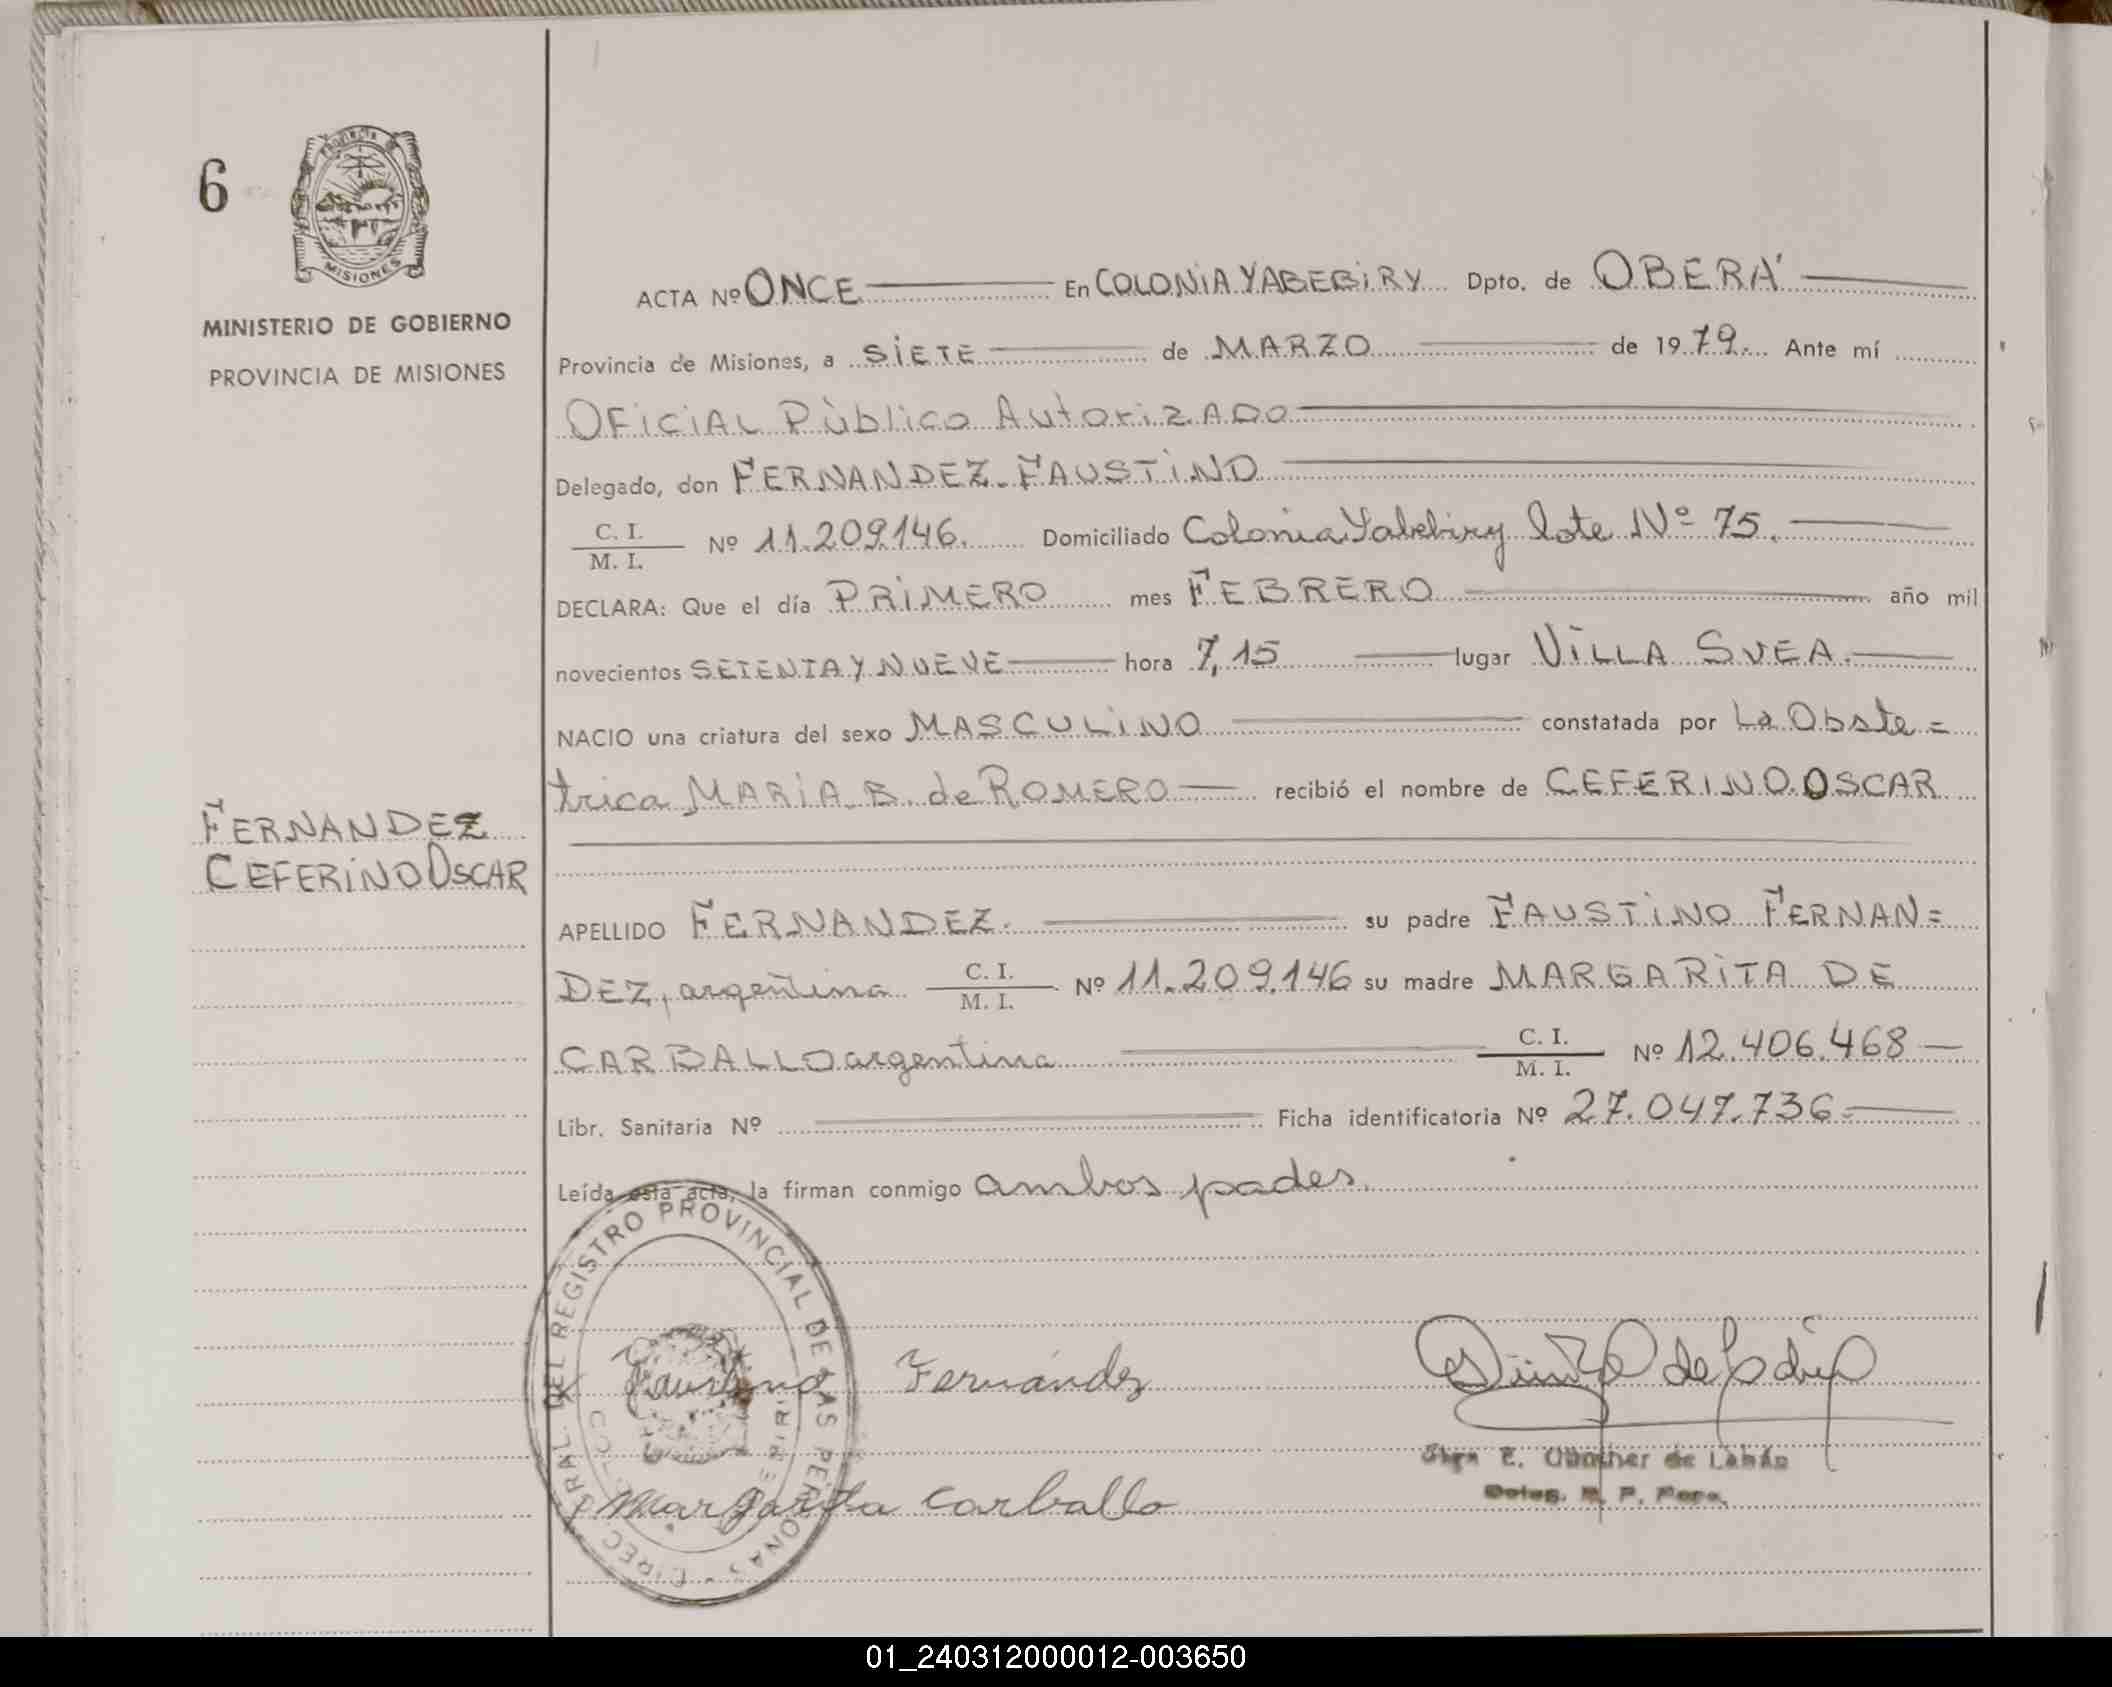 6
PROVINCIA DE
MISIONES
MINISTERIO DE GOBIERNO
PROVINCIA DE MISIONES
ACTA Nº ONCE En COLONIA YABEBIRY Dpto. de OBERÁ
Provincia de Misiones, a SIETE de MARZO de 1979. Ante mí
OFICIAL Público AutorizADO
Delegado, don FERNANDEZ FAUSTINO
C. I.
M. I. Nº 11.209.146. Domiciliado Colonia Yabebiry lote Nº 75.
DECLARA: Que el día PRIMERO mes FEBRERO año mil
novecientos SETENTA Y NUEVE hora 7,15 lugar VILLA SVEA.
NACIO una criatura del sexo MASCULINO constatada por La Obste=
trica MARIA B. de ROMERO recibió el nombre de CEFERINO OSCAR
FERNANDEZ
CEFERINO OSCAR
APELLIDO FERNANDEZ. su padre FAUSTINO FERNAN=
DEZ, argentina C. I.
M. I. Nº 11.209.146 su madre MARGARITA DE
CARBALLO argentina C. I.
M. I. Nº 12.406.468
Libr. Sanitaria Nº Ficha identificatoria Nº 27.047.736.
Leída esta acta, la firman conmigo ambos pades.
DEL REGISTRO PROVINCIAL DE LAS PERSONAS
Faustino Fernández
Margarita Carballo
E. Günther de
01_240312000012-003650